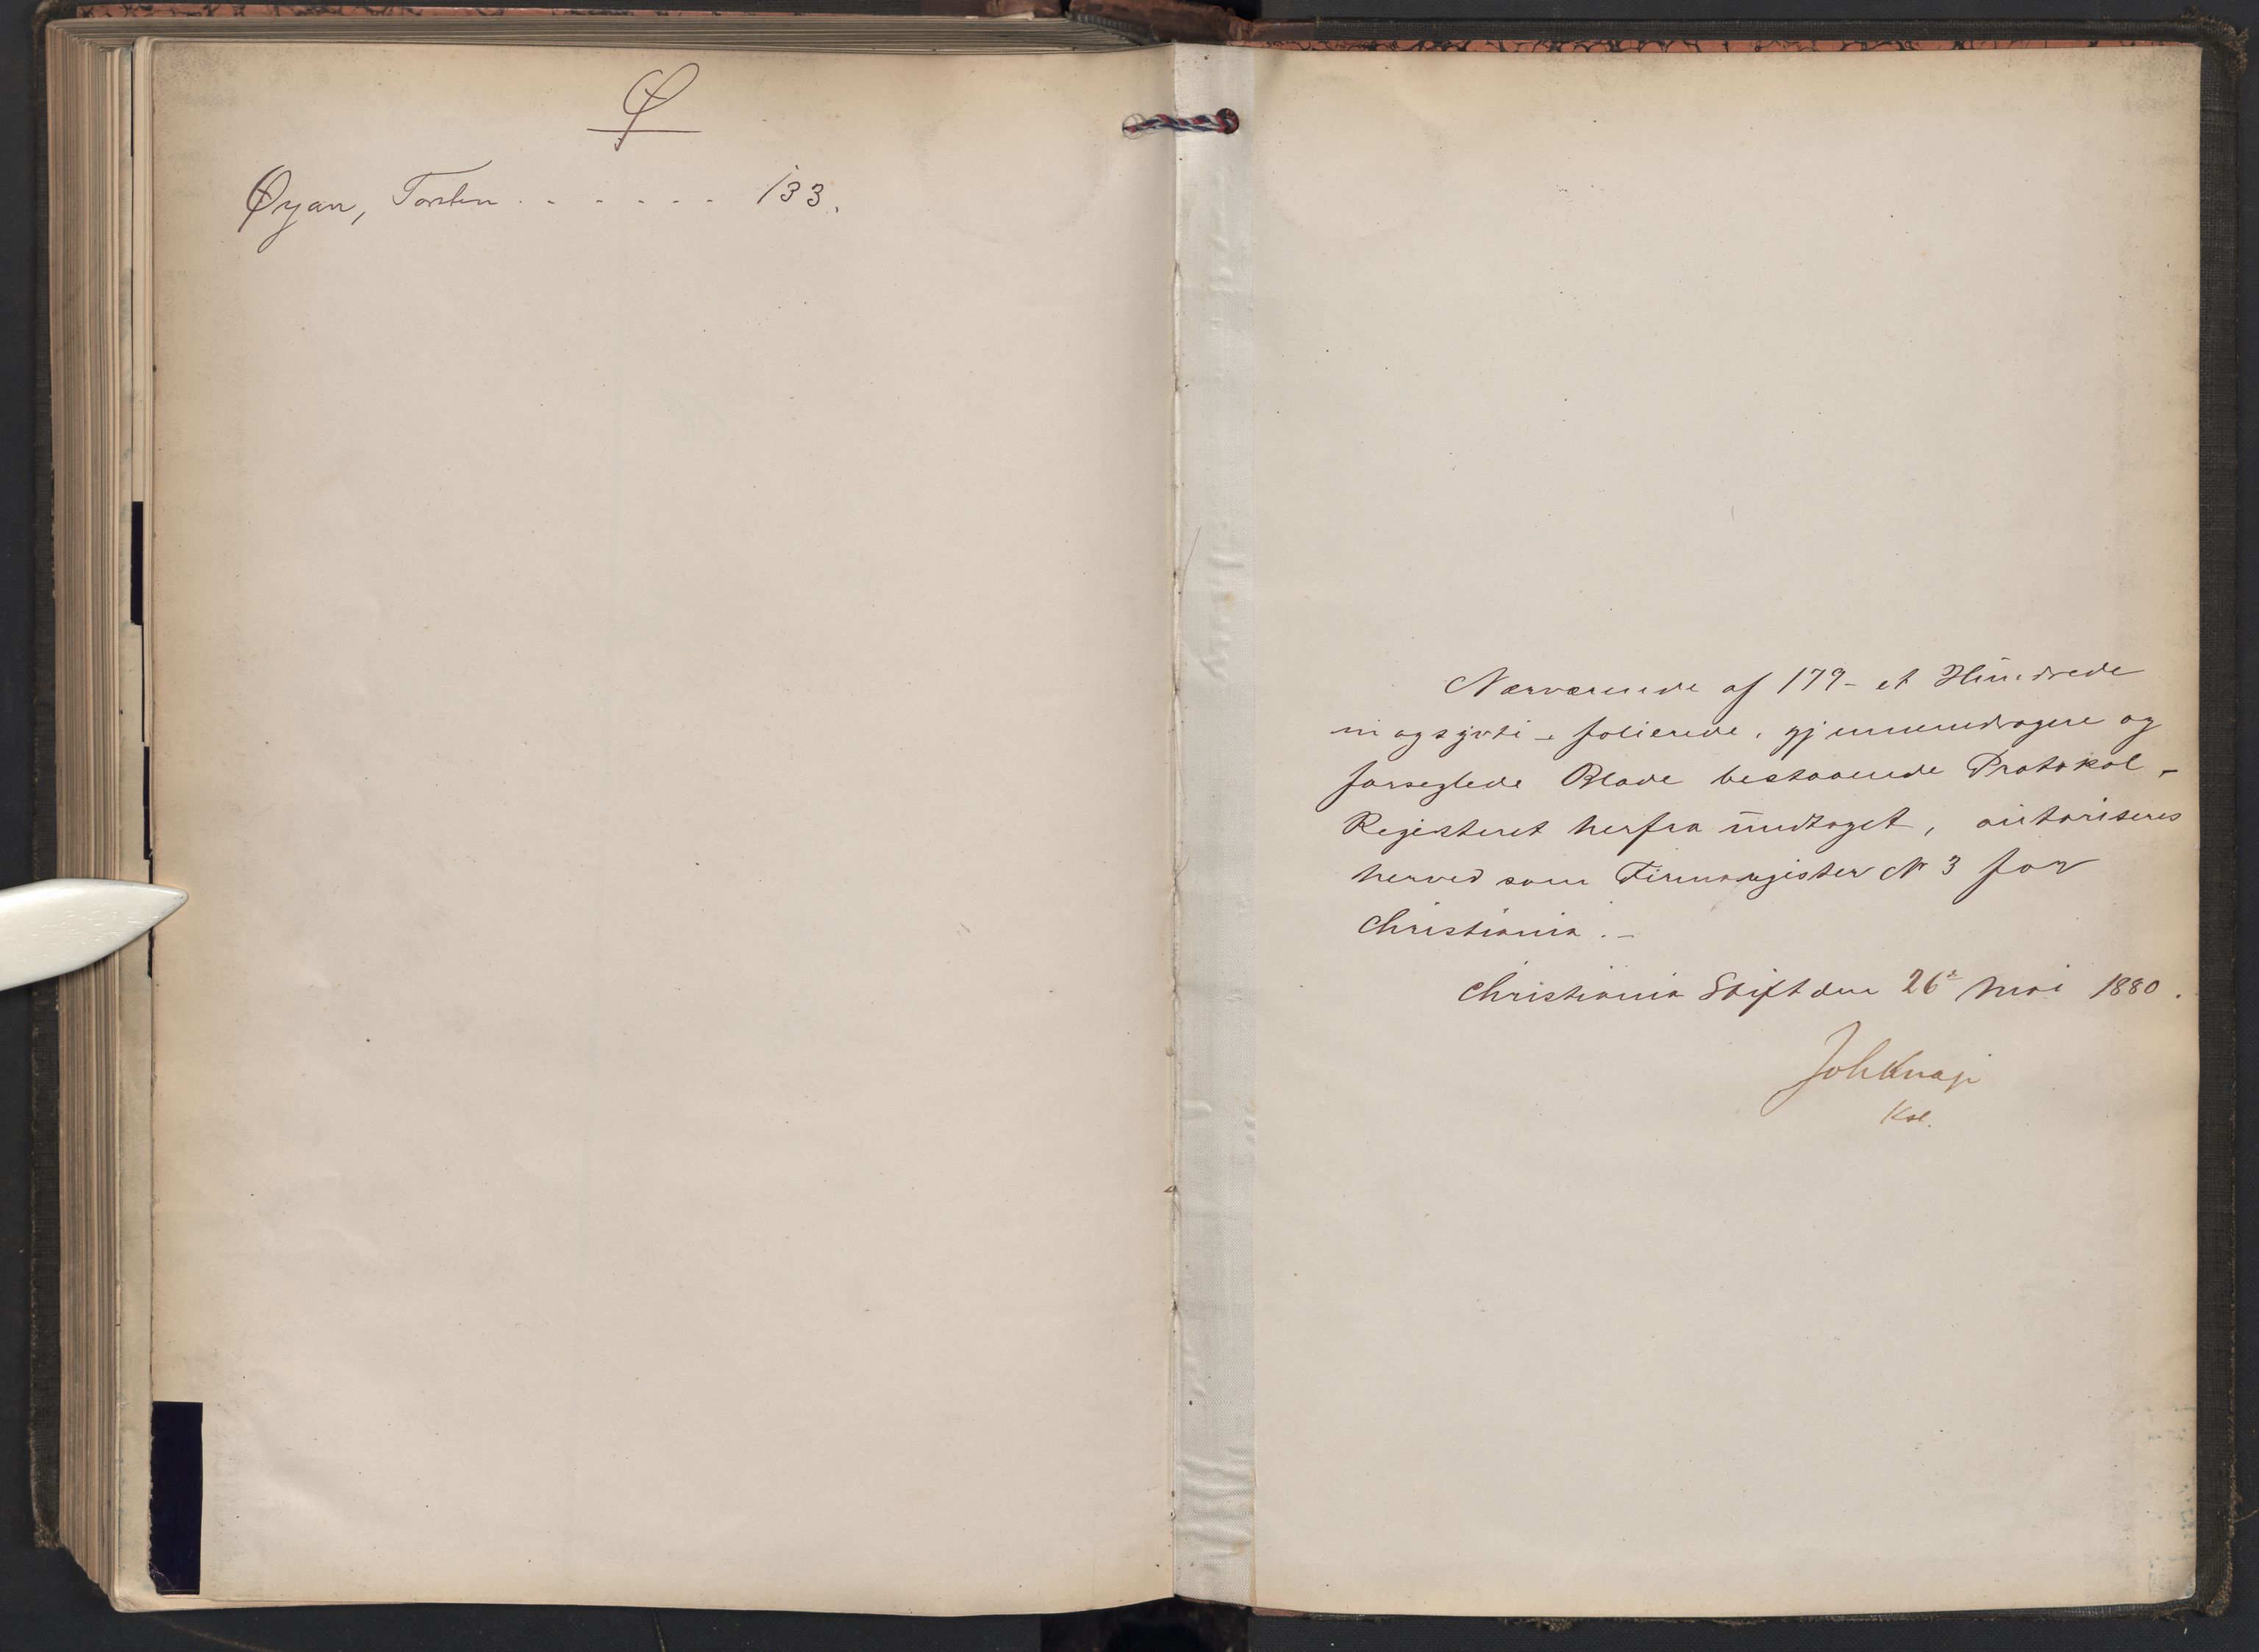 Ø
Øyan, Torsten . . . . . . 133.
Nærværende af 179 - et Hundrede
ni og sytti - folierede, gjennemdragne og
forseglede Blade bestaaende Protokol,
Registeret herfra undtaget, autoriseres
herved som Firmaregister No 3 for
Christiania. -
Christiania Stift den 26de Mai 1880.
Joh Knap
Kst.